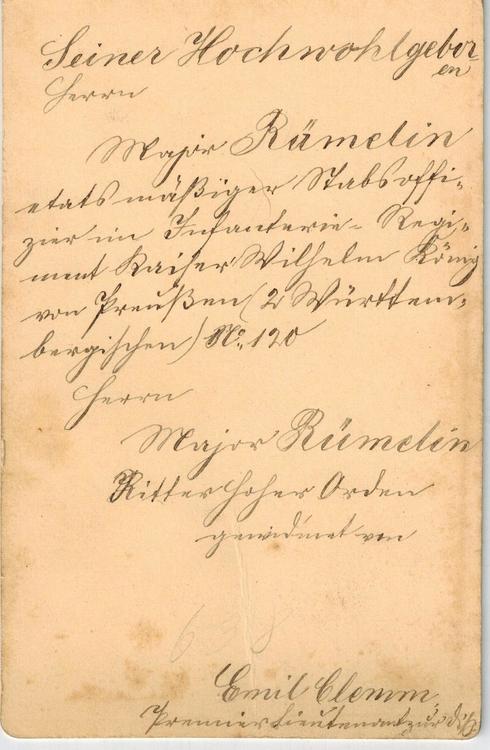 Seiner Hochwohlgebor
en
Herrn
Major Rümelin
etatsmäßiger Stabsoffi-
zier im Infanterie-Regi-
ment Kaiser Wilhelm König
von Preußen (2 Württem-
bergischen) No. 120
Herrn
Major Rümelin
Ritter hoher Orden
gewidmet von
638
Emil Clemm
Premierlieutenant zur dis